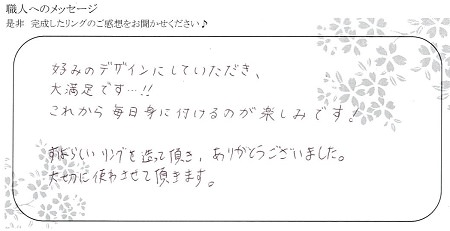 職人へのメッセージ
是非 完成したリングのご感想をお聞かせください♪
好みのデザインにしていただき、
大満足です…!!
これから毎日身に付けるのが楽しみです!
すばらしいリングを造って頂き、ありがとうございました。
大切に使わさせて頂きます。